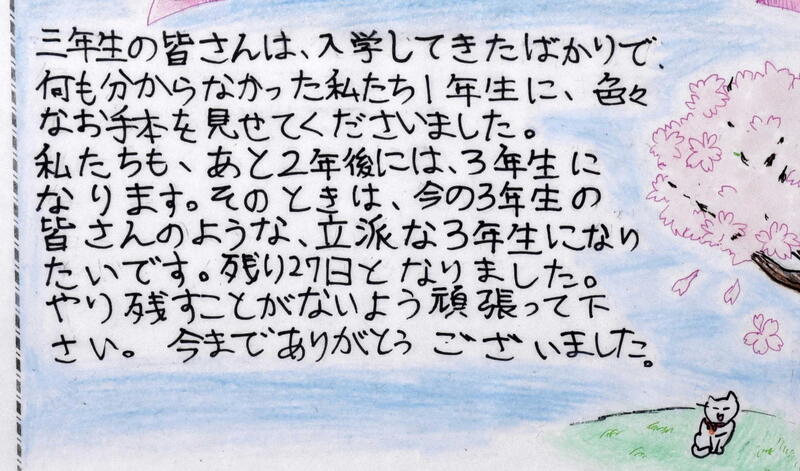 三年生の皆さんは、入学してきたばかりで、
何も分からなかった私たち1年生に、色々
なお手本を見せてくださいました。
私たちも、あと2年後には、3年生に
なります。そのときは、今の3年生の
皆さんのような、立派な3年生になり
たいです。残り27日となりました。
やり残すことがないよう頑張って下
さい。今までありがとうございました。